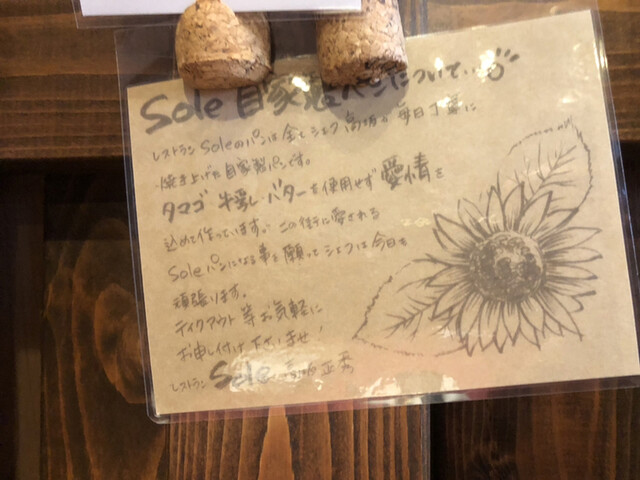 Sole 自家製パンについて…
レストラン Soleのパンは全てシェフ高坂が毎日丁寧に
焼き上げた自家製パンです。
タマゴ 牛乳・バターを使用せず 愛情を
込めて作っています。この街に愛される
Soleパンになる事を願ってシェフは今日も
頑張ります。
テイクアウト等お気軽に
お申し付け下さいませ!
レストラン Sole 高坂正